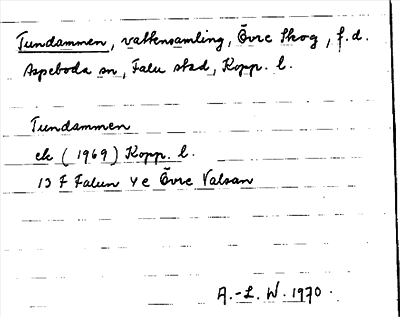 Tundammen, vattensamling, Övre Skog, f.d.
Aspeboda sn, Falu stad, Kopp. l.
Tundammen
ek (1969) Kopp. l.
13 F Falun 4 e Övre Valsan
A.-L. W. 1970.